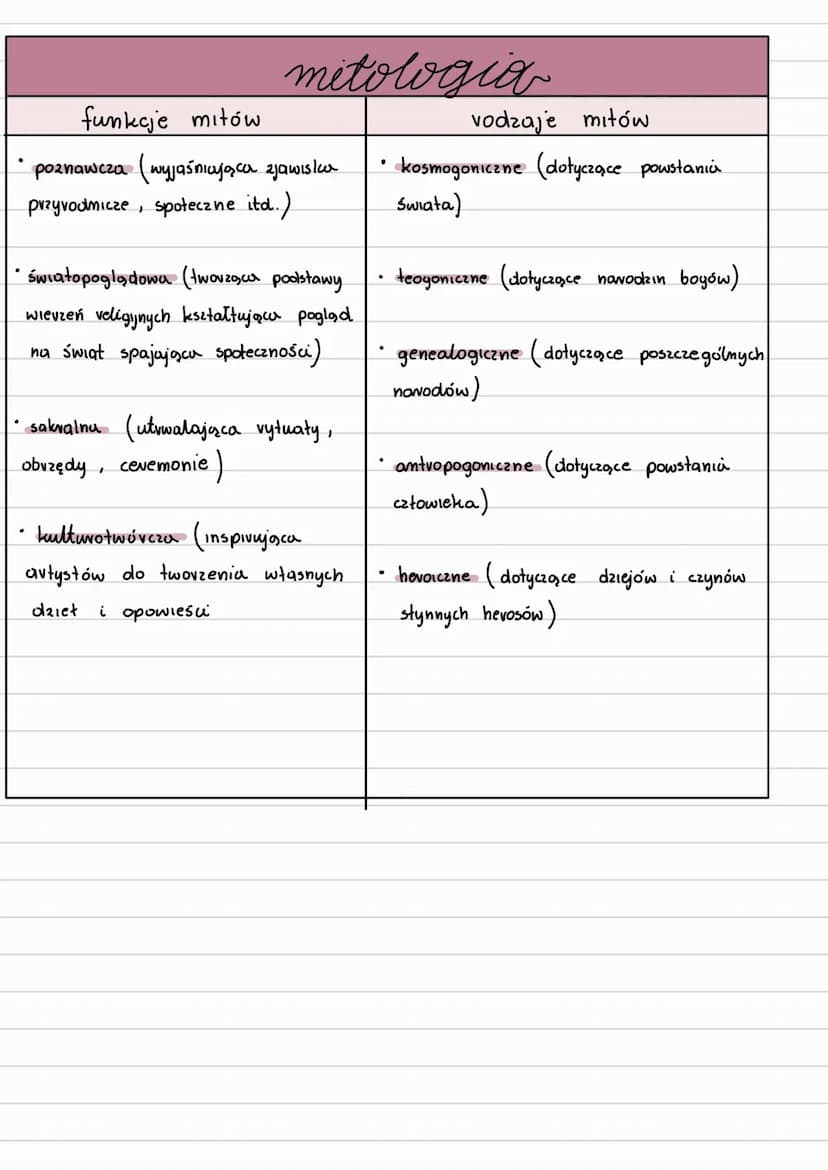 mitologia
funkcje mitów
rodzaje mitów
• poznawcza (wyjaśniająca zjawiska
przyrodnicze, społeczne itd.)
• światopoglądowa (tworząca podstawy
wierzeń religijnych kształtująca pogląd
na świat spajająca społeczności)
• sakralna (utrwalająca rytuały,
obrzędy, ceremonie)
• kulturotwórcza (inspirująca
artystów do tworzenia własnych
dzieł i opowieści
• kosmogoniczne (dotyczące powstania
świata)
• teogoniczne (dotyczące narodzin bogów)
• genealogiczne (dotyczące poszczególnych
narodów)
• antropogoniczne (dotyczące powstania
człowieka)
• heroiczne (dotyczące dziejów i czynów
słynnych herosów)